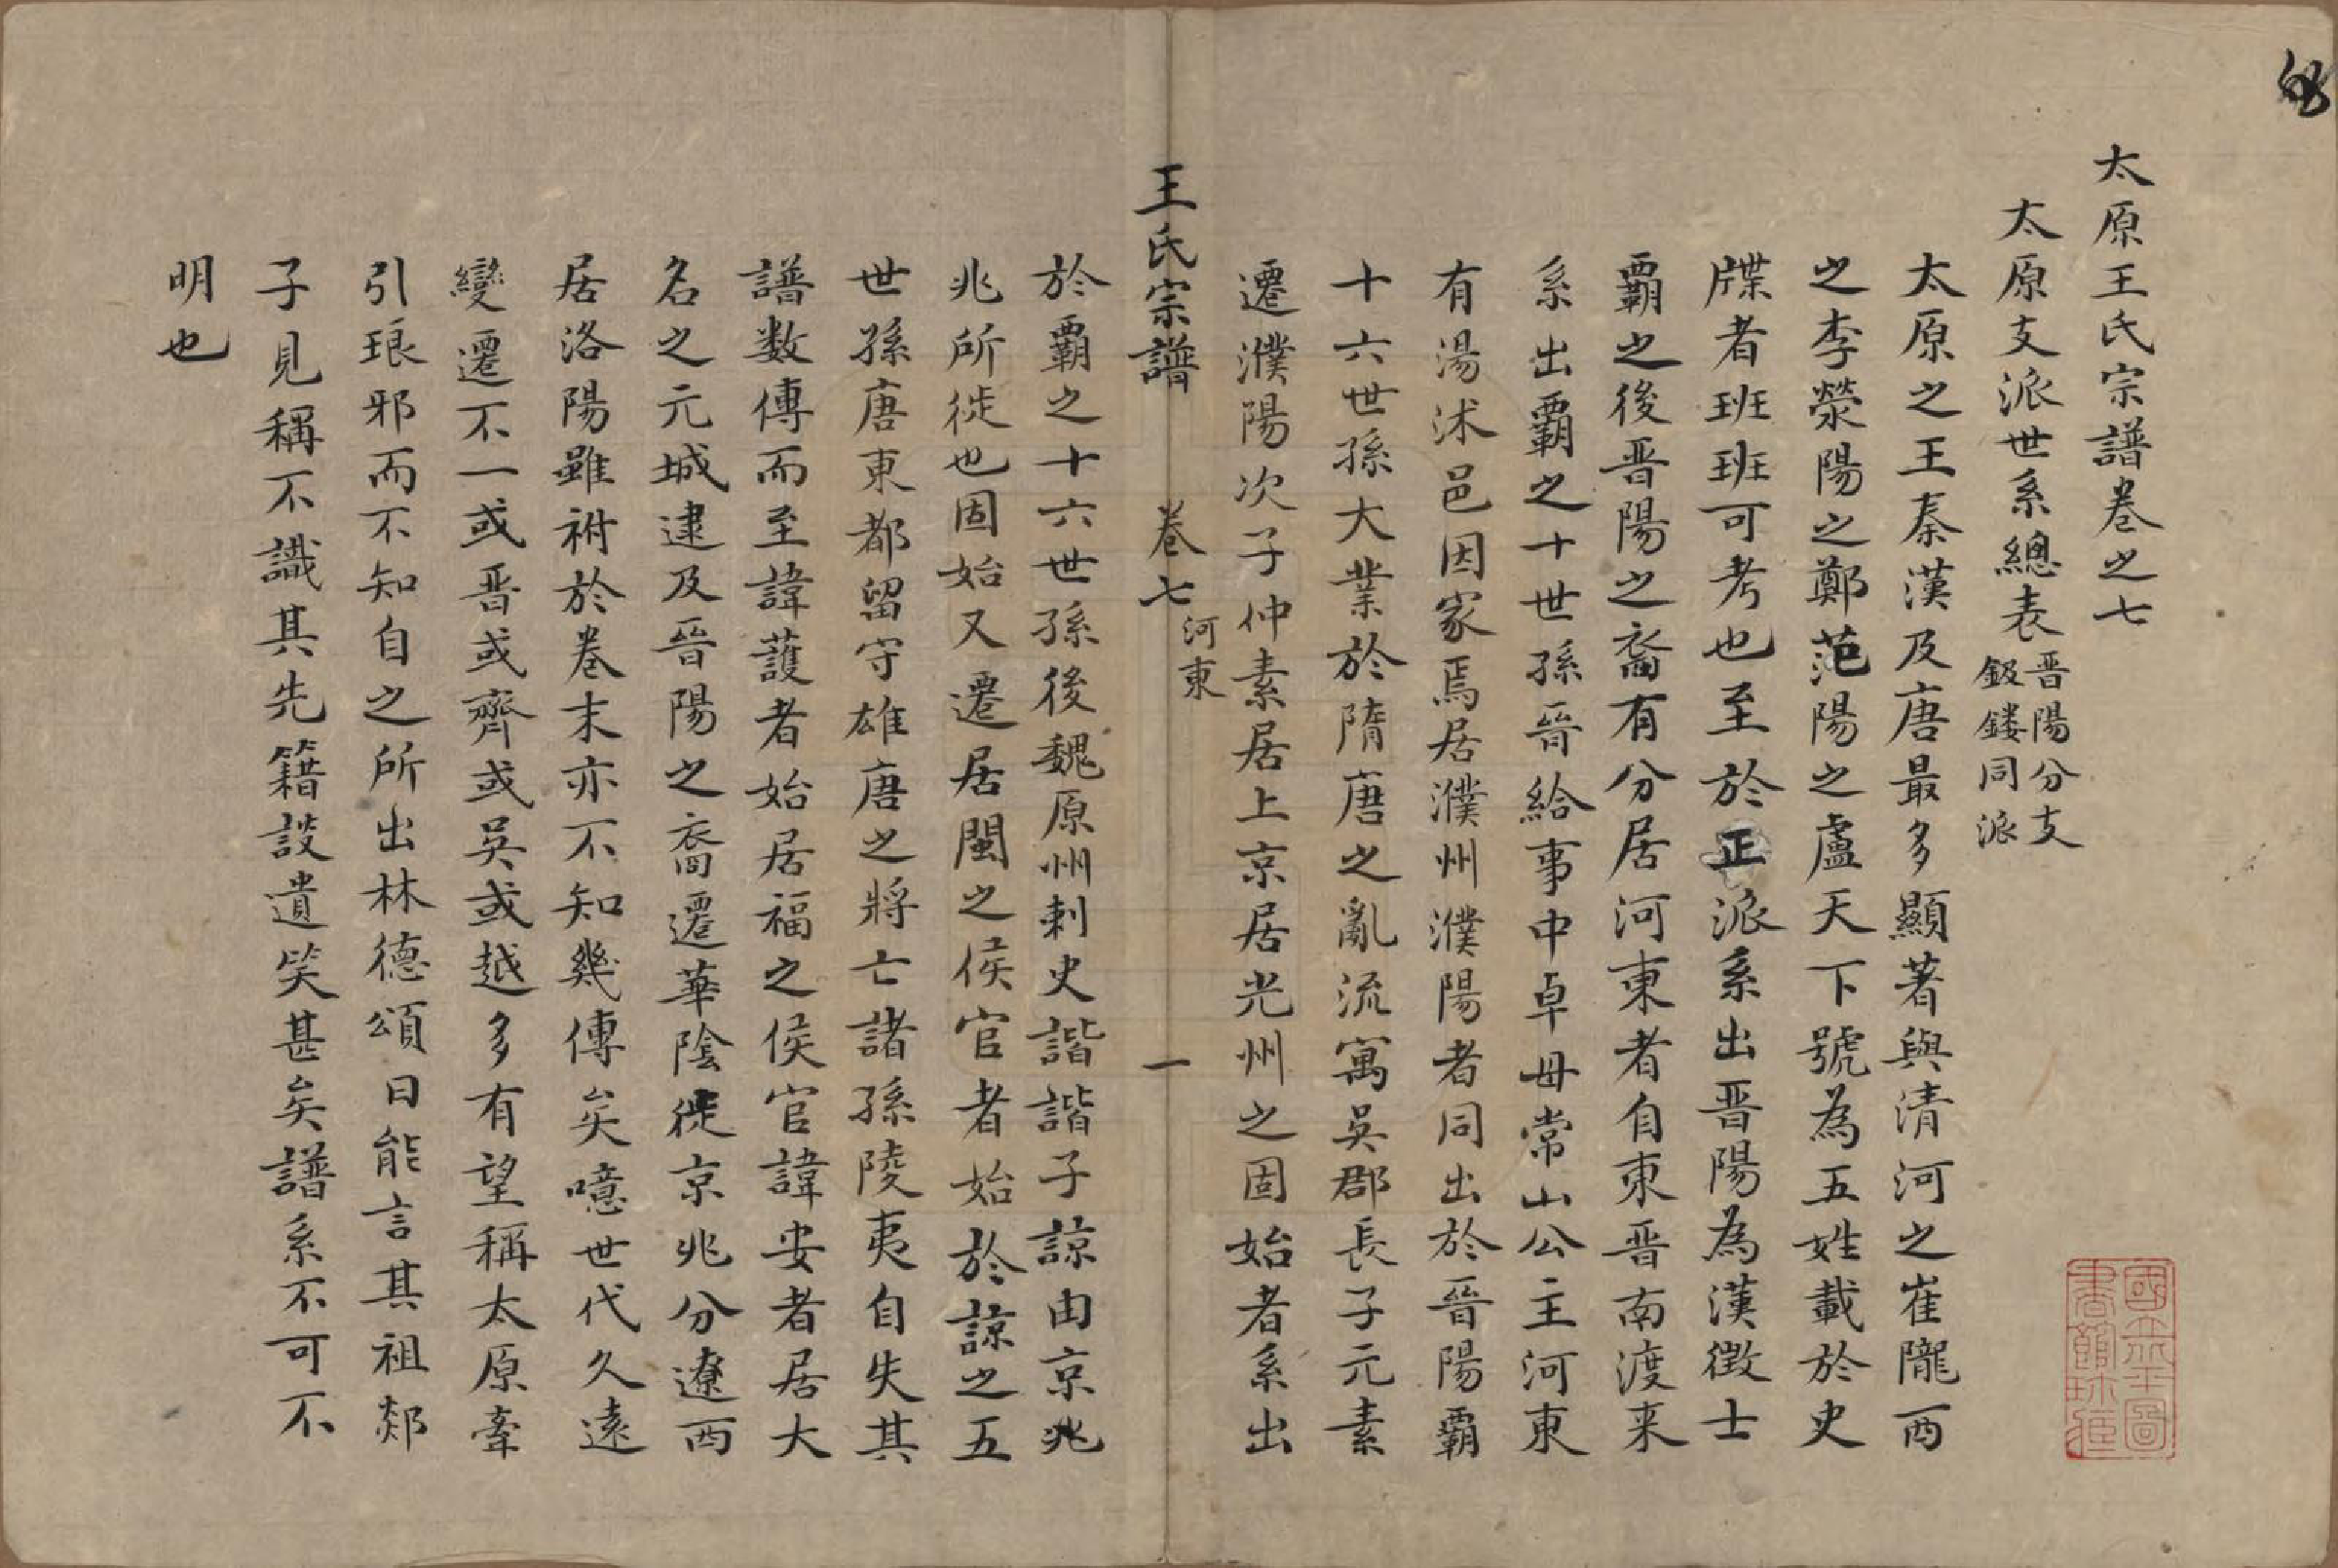 太原王氏宗譜卷之七
太原支派世系總表晋陽分支鈒鏤同派
太原之王秦漢及唐最多顯著與清河之崔隴西
之李滎陽之鄭范陽之盧天下號為五姓載於史
牒者班班可考也至於正派系出晋陽為漢徵士
霸之後晋陽之裔有分居河東者自東晋南渡来
系出霸之十世孫晉給事中卓毋常山公主河東
有湯沭邑因家焉居濮州濮陽者同出於晉陽霸
十六世孫大業於隋唐之亂流寓吳郡長子元素
遷濮陽次子仲素居上京居光州之固始者系出
王氏宗譜 卷七 河東 一
於霸之十六世孫後魏原州刺史諧諧子諒由京兆
兆所徙也固始又遷居閩之侯官者始於諒之五
世孫唐東都留守雄唐之將亡諸孫陵夷自失其
譜数傳而至諱護者始居福之侯官諱安者居大
名之元城逮及晉陽之裔遷華陰徙京兆分遼西
居洛陽雖祔於卷末亦不知幾傳矣噫世代久遠
變遷不一或晋或齊或吳或越多有望稱太原牽
引琅邪而不知自之所出林德頌曰能言其祖郯
子見稱不識其先籍談遺笑甚矣譜系不可不
明也
國立北平圖
書館珍藏